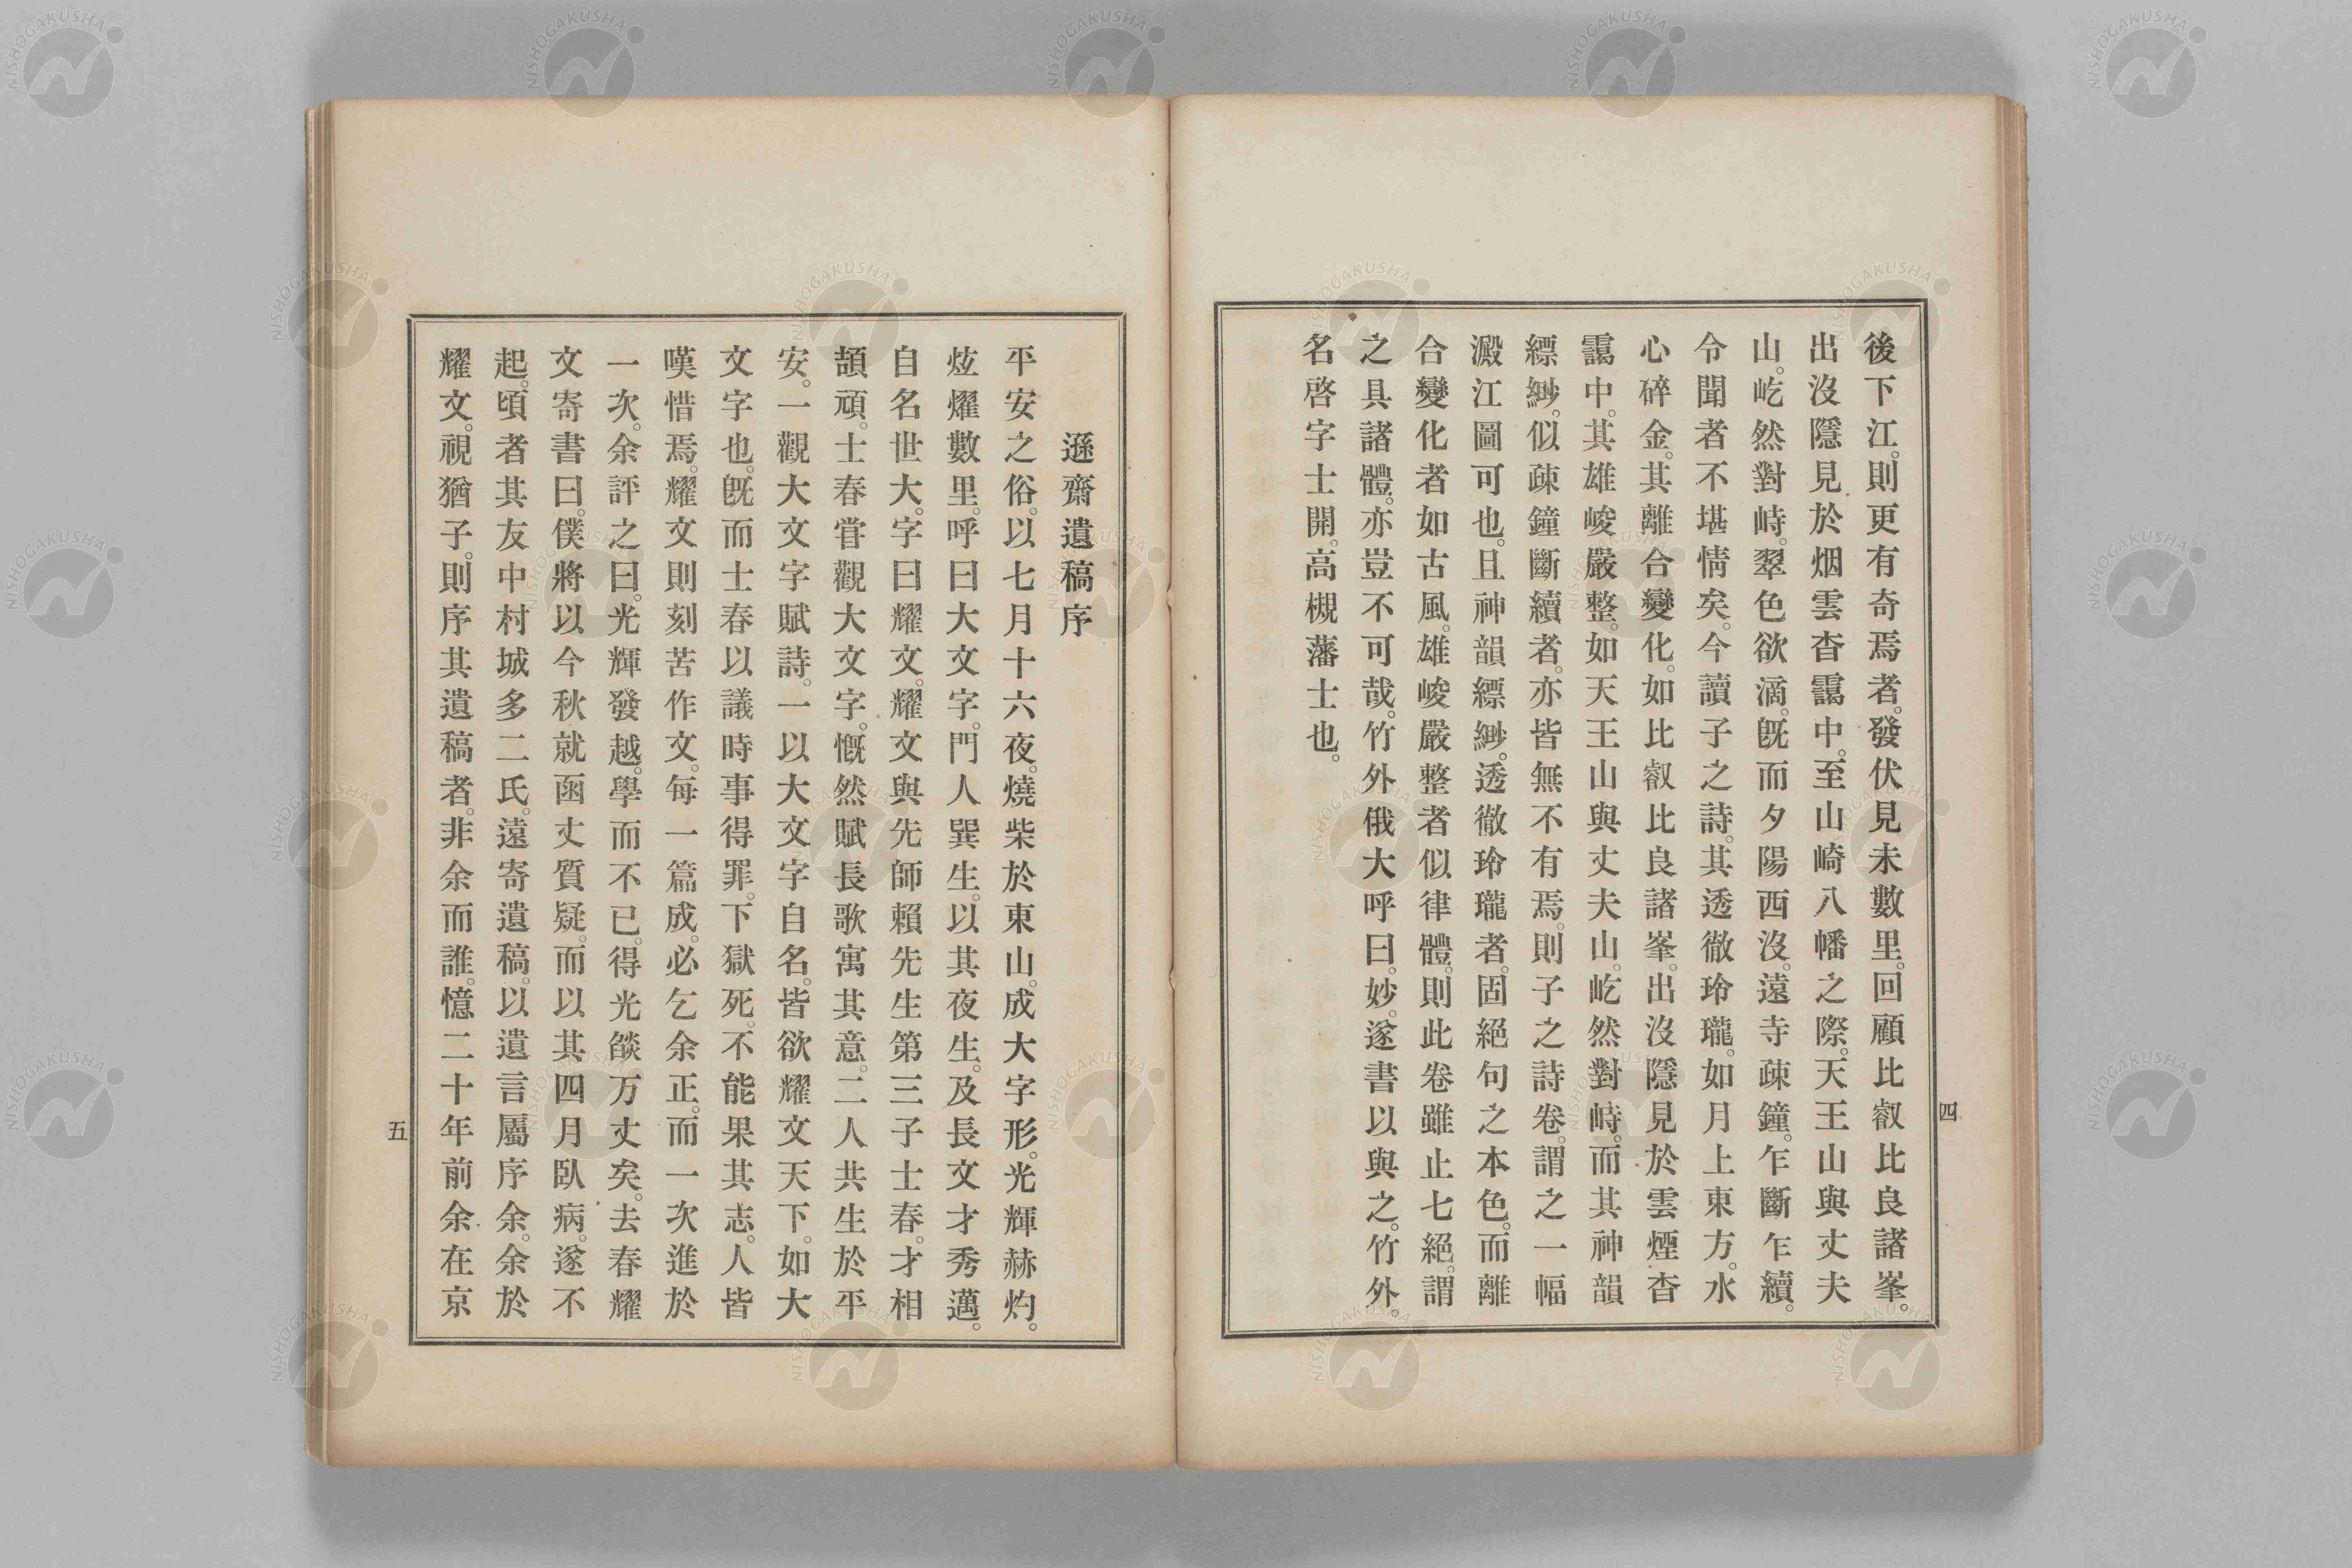 後下江。則更有奇焉者。發伏見未數里。回顧比叡比良諸峯。
出沒隱見於烟雲杳靄中。至山崎八幡之際。天王山與丈夫
山。屹然對峙。翠色欲滴。既而夕陽西沒。遠寺疎鐘。乍斷乍續。
令聞者不堪情矣。今讀子之詩。其透徹玲瓏。如月上東方。水
心碎金。其離合變化。如比叡比良諸峯。出沒隱見於雲煙杳
靄中。其雄峻嚴整。如天王山與丈夫山。屹然對峙。而其神韻
縹緲。似疎鐘斷續者。亦皆無不有焉。則子之詩卷。謂之一幅
澱江圖可也。且神韻縹緲。透徹玲瓏者。固絕句之本色。而離
合變化者如古風。雄峻嚴整者似律體。則此卷雖止七絕。謂
之具諸體。亦豈不可哉。竹外俄大呼曰。妙。遂書以與之。竹外。
名啓字士開。高槻藩士也。
四
遜齋遺稿序
平安之俗。以七月十六夜。燒柴於東山。成大字形。光輝赫灼。
炫燿數里。呼曰大文字。門人巽生。以其夜生。及長文才秀邁。
自名世大。字曰耀文。耀文與先師賴先生第三子士春。才相
頡頏。士春嘗觀大文字。慨然賦長歌寓其意。二人共生於平
安。一觀大文字賦詩。一以大文字自名。皆欲耀文天下。如大
文字也。既而士春以議時事得罪。下獄死。不能果其志。人皆
嘆惜焉。耀文則刻苦作文。每一篇成。必乞余正。而一次進於
一次。余評之曰。光輝發越。學而不已。得光燄万丈矣。去春耀
文寄書曰。僕將以今秋就函丈質疑。而以其四月臥病。遂不
起。頃者其友中村城多二氏。遠寄遺稿。以遺言屬序余。余於
耀文。視猶子。則序其遺稿者。非余而誰。憶二十年前余在京
五
NISHOGAKUSHA